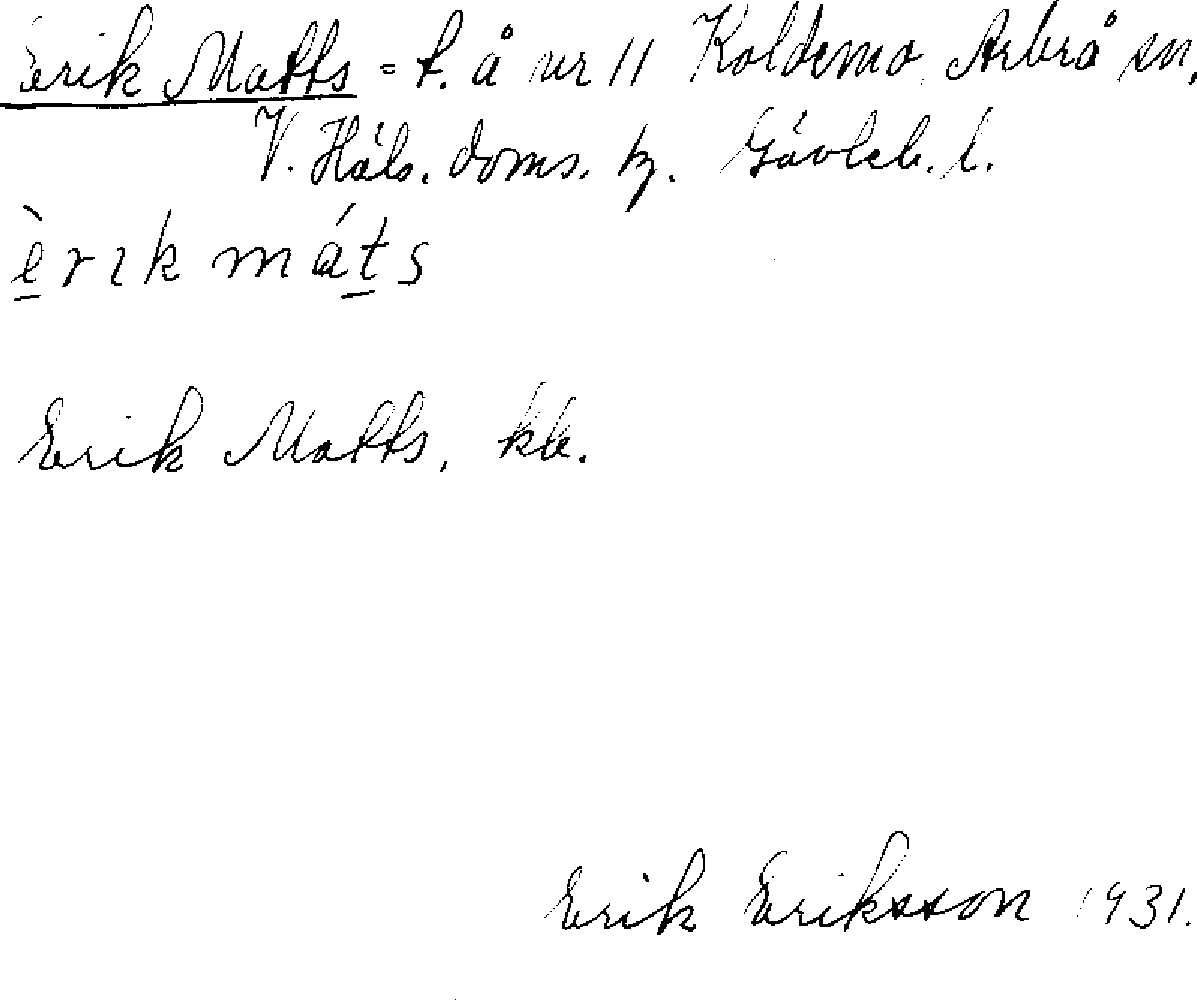 Erik Matts = t. å nr 11 Koldemo, Arbrå sn,
V. Häls. doms. tg. Gävleb. l.
è̱rɩk má​ṯs
Erik Matts, kb.
Erik Eriksson 1931.